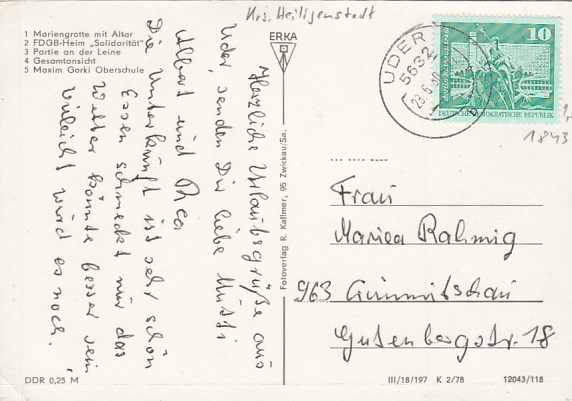 Krs. Heiligenstadt
1 Mariengrotte mit Altar
2 FDGB-Heim „Solidarität"
3 Partie an der Leine
4 Gesamtansicht
5 Maxim Gorki Oberschule
Herzliche Urlaubsgrüße aus
Uder, senden Dir liebe Mutti
Albert und Rica
Die Unterkunft ist sehr schön
Essen schmeckt nur das
Wetter könnte besser sein
vieleicht wird es noch.
ERKA
Fotoverlag R. Kallmer, 95 Zwickau/Sa.
UDER
5632
10
DEUTSCHE DEMOKRATISCHE REPUBLIK
1843
Frau
Marica Rahmig
963 Crimmitschau
Gutenbergstr. 18
DDR 0,25 M
III/18/197 K 2/78
12043/118